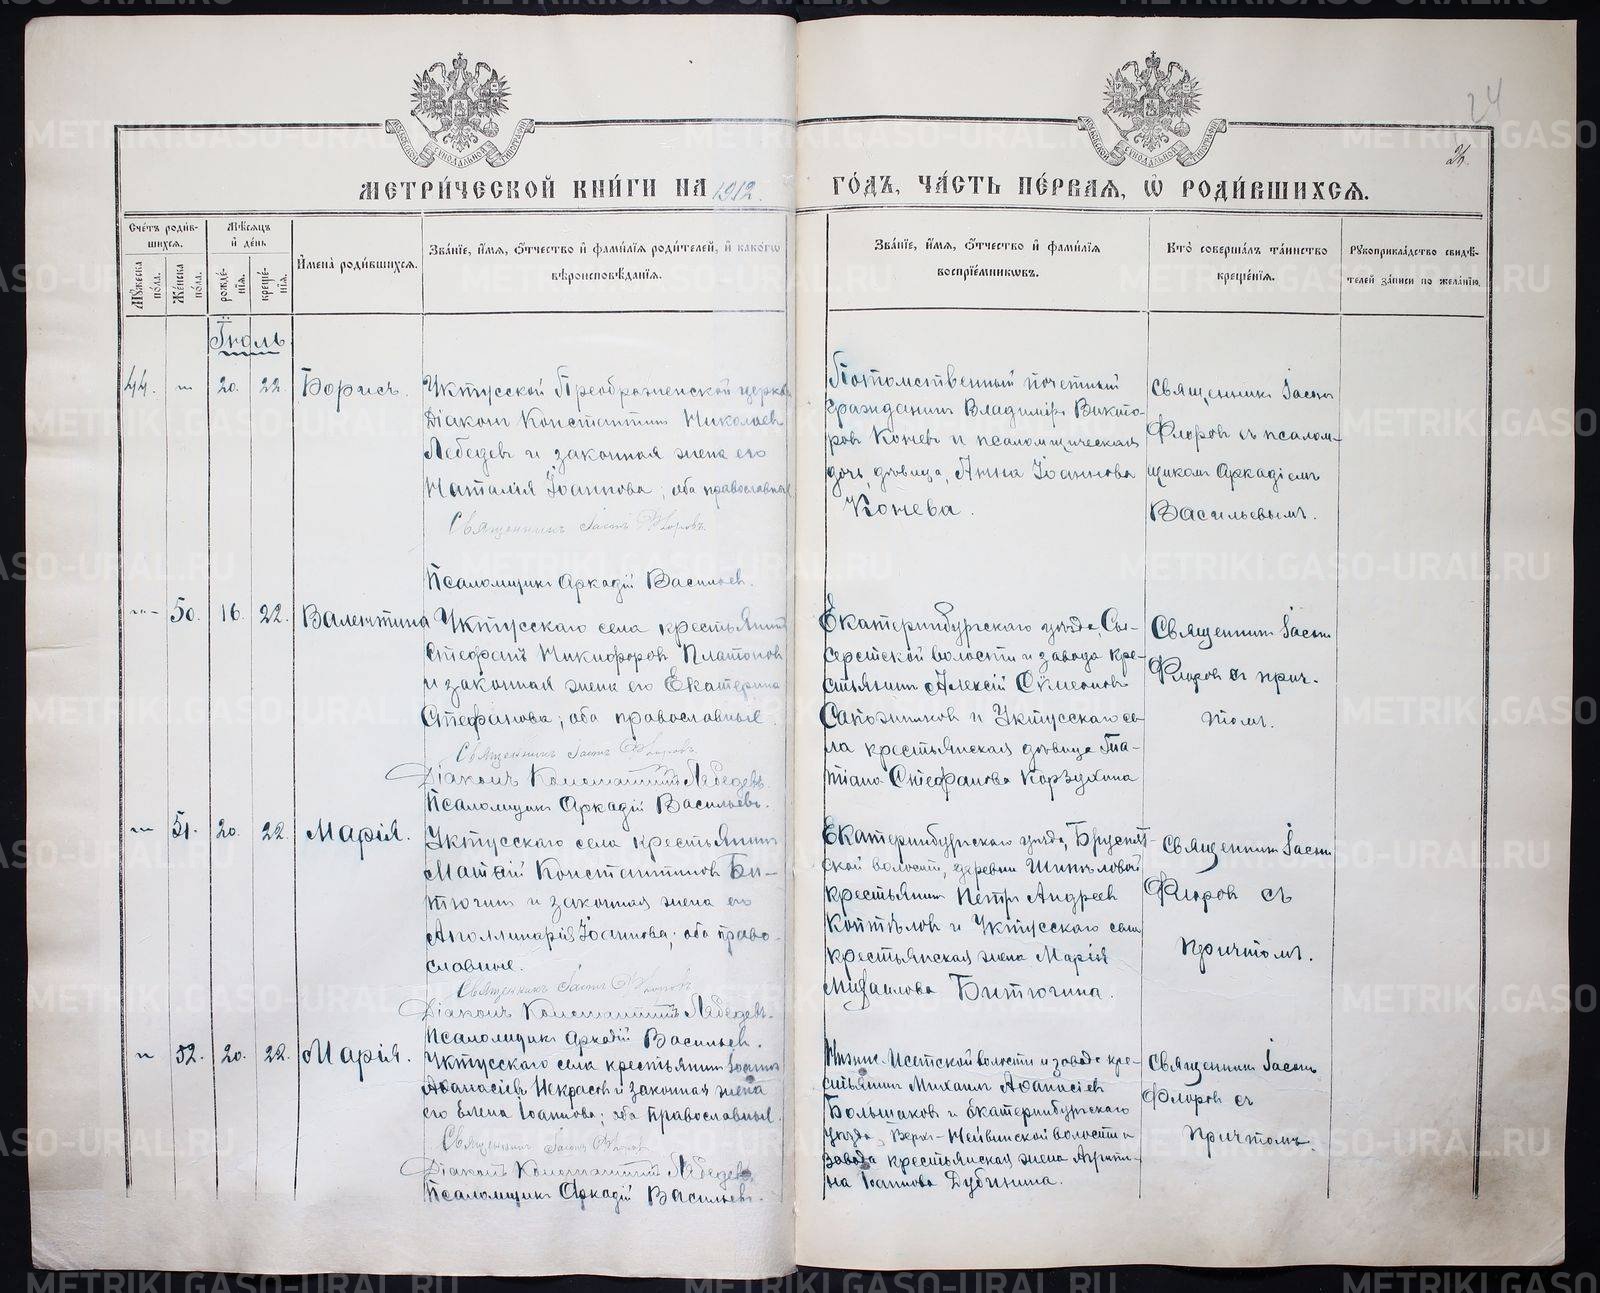 24
26.
МОСКОВСКОЙ СѴНОДАЛЬНОЙ ТИПОГРАФІИ
МОСКОВСКОЙ СѴНОДАЛЬНОЙ ТИПОГРАФІИ
МЕТРИ́ЧЕСКОЙ КНИ́ГИ НА 1912.
ГО́ДЪ, ЧА́СТЬ ПЕ́РВАЯ, Ѡ҆ РОДИ́ВШИХСЯ.
Сче́тъ роди́в-
шихся.
Мꙋ́жеска по́ла.
Же́нска по́ла.
Мѣ́сяцъ
и҆ де́нь
рожде́-
нїя.
креще́-
нїя.
И҆мена̀ роди́вшихся.
Зва́нїе, и҆́мя, ѻ҆́тчество и҆ фами́лїя роди́телей, и҆ како́гѡ
вѣроисповѣ́данїя.
Зва́нїе, и҆́мя, ѻ҆́тчество и҆ фами́лїя
воспрїе́мникѡвъ.
Кто̀ соверша́лъ та́инство
креще́нїя.
Рꙋкоприкла́дство свидѣ́-
телей за́писи по жела́нїю.
Іюль
44. " 20. 22. Борисъ.
Уктусской Преображенской церкви
Діаконъ Константинъ Николаев
Лебедевъ и законная жена его
Наталія Іоаннова; оба православные
Священникъ Іасонъ Флоровъ.
Псаломщикъ Аркадій Васильев.
Потомственный почетный
гражданинъ Владиміръ Викто-
ров Коневъ и псаломщическая
дочь, девица, Анна Іоаннова
Конева.
Священникъ Іасонъ
Флоровъ съ псалом-
щикомъ Аркадіемъ
Васильевымъ.
" 50. 16. 22. Валентина
Уктусскаго села крестьянинъ
Стефанъ Никифоров Платонов
и законная жена его Екатерина
Стефанова; оба православные.
Священникъ Іасонъ Флоровъ.
Діаконъ Константинъ Лебедевъ.
Псаломщикъ Аркадій Васильевъ.
Екатеринбургскаго уезда, Сы-
сертской волости и завода кре-
стьянинъ Алексій Сѵмеоновъ
Сапожников и Уктусскаго се-
ла крестьянская девица Та-
тіана Стефанова Корзухина
Священникъ Іасонъ
Флоровъ съ прич-
томъ.
" 51. 20. 22. Марія.
Уктусскаго села крестьянинъ
Матѳій Константинов Би-
тюгинъ и законная жена его
Аполлинарія Іоаннова; оба право-
славные.
Священникъ Іасонъ Флоровъ.
Діаконъ Константинъ Лебедевъ.
Псаломщикъ Аркадій Васильев.
Екатеринбургскаго уезда,
ской волости, деревни
крестьянинъ Петръ Андреев
Коптѣлов и Уктусскаго села
крестьянская жена Марія
Михаилова Битюгина.
Священникъ Іасонъ
Флоров съ
причтомъ.
" 52. 20. 22. Марія.
Уктусскаго села крестьянинъ Іоаннъ
Аѳанасіев Некрасов и законная жена
его Елена Іоаннова; оба православные.
Священникъ Іасонъ Флоров
Діаконъ Константинъ Лебедевъ.
Псаломщикъ Аркадій Васильевъ.
Нижне-Исетской волости и завода кре-
стьянинъ Михаилъ Аѳанасіев
Большаков и Екатеринбургскаго
уезда, Верхъ-Нейвинской волости и
завода крестьянская жена Агрипи-
на Іоаннова Дубинина.
Священникъ Іасонъ
Флоров съ
причтомъ.
METRIKI.GASO-URAL.RU